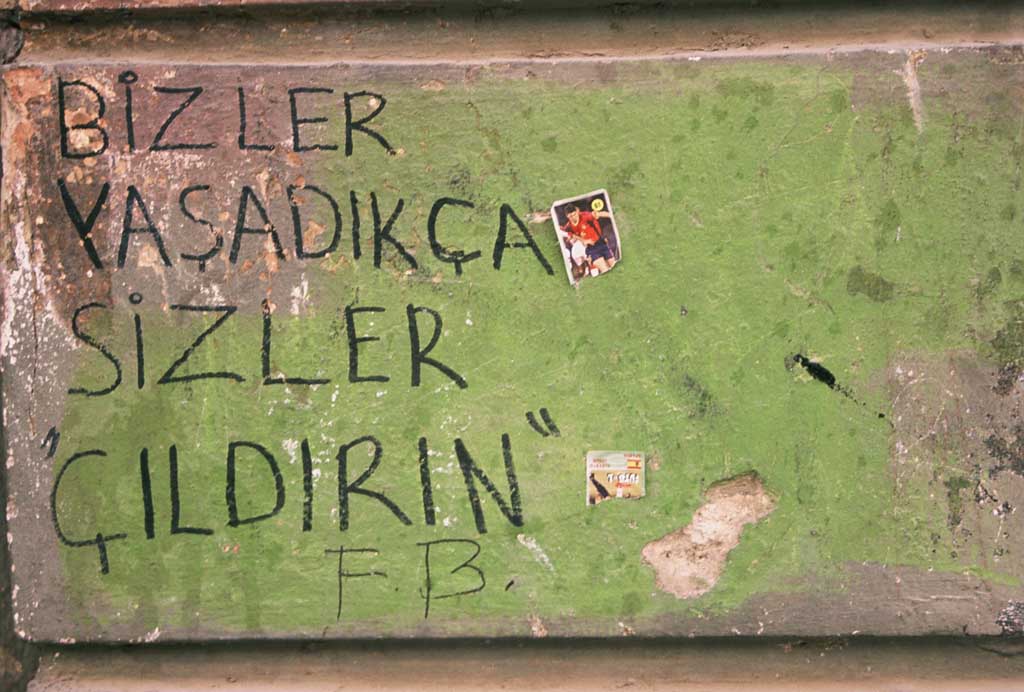 BİZLER
YAŞADIKÇA
SİZLER
"ÇILDIRIN"
F.B.